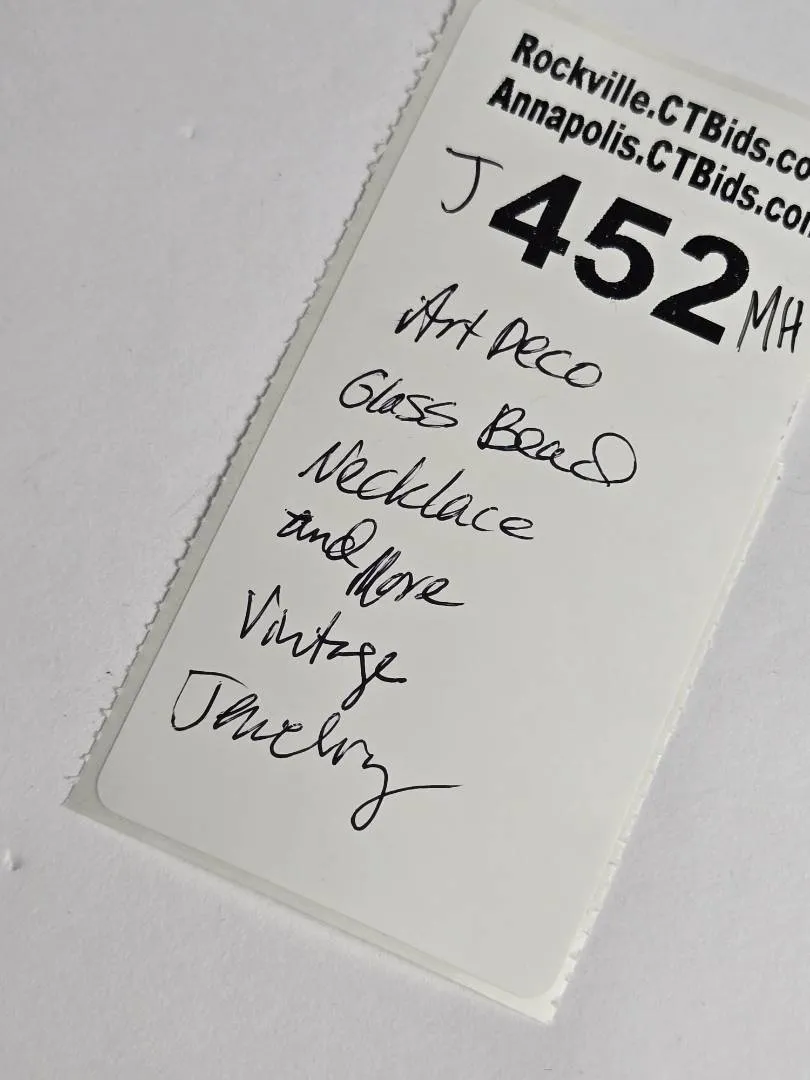 Rockville.CTBids.co
Annapolis.CTBids.com
J 452 MH
Art Deco
Glass Bead
Necklace
and More
Vintage
Jewelry